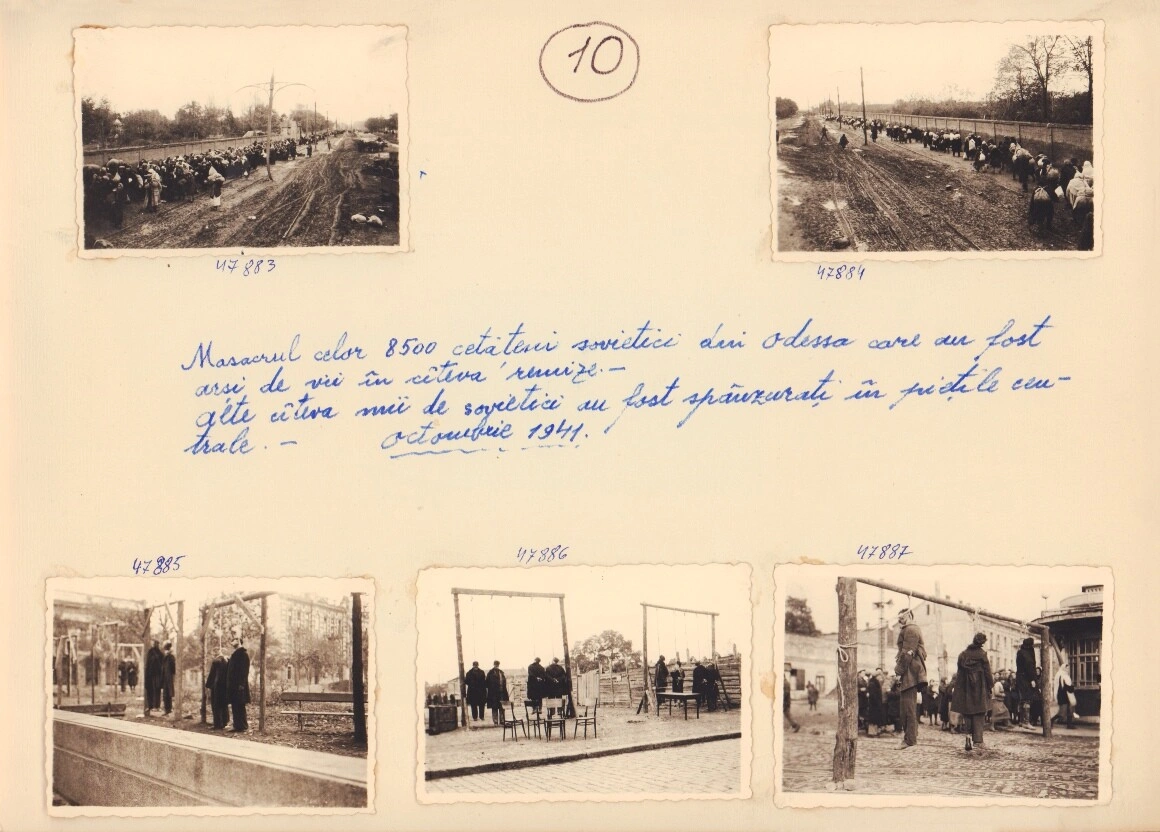 10
47883
47884
Masacrul celor 8500 cetăteni sovietici din Odessa care au fost
arși de vii în cîteva remize.-
Alte cîteva mii de sovietici au fost spânzurați în piețile cen-
trale. - Octombrie 1941.
47885
47886
47887